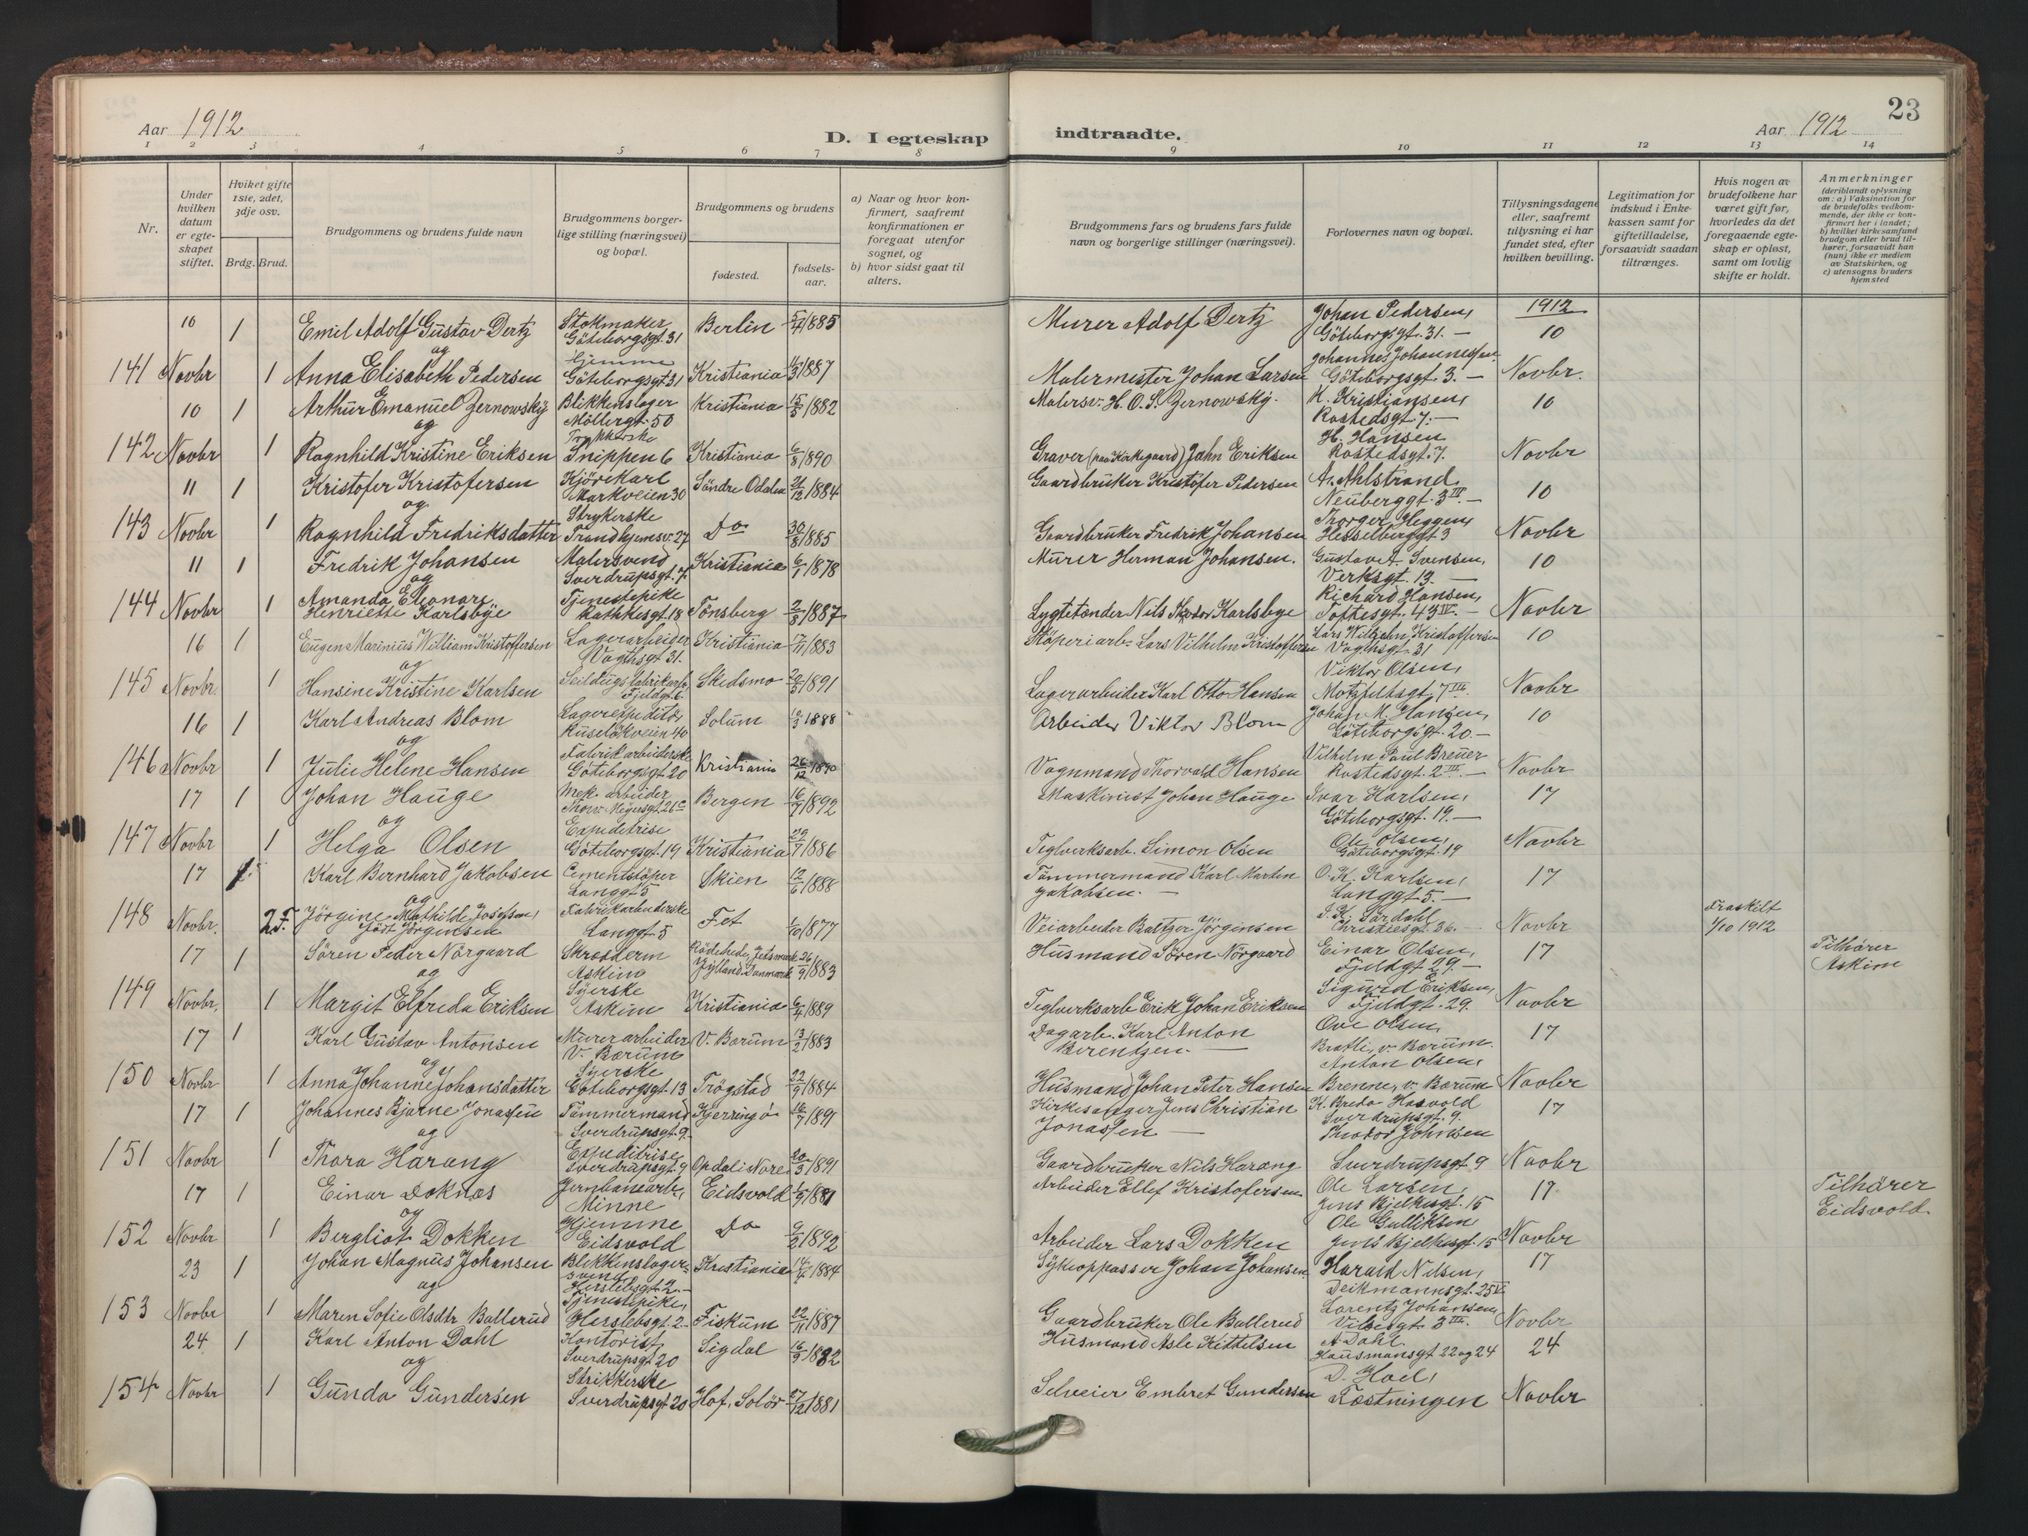 23
Aar 1912
D. I egteskap indtraadte.
Aar 1912
1 2 3 4 5 6 7 8 9 10 11 12 13 14
Nr.
Under hvilken datum er egteskapet stiftet.
Hviket gifte 1ste, 2det, 3dje osv.
Brdg. Brud.
Brudgommens og brudens fulde navn
Brudgommens borgerlige stilling (næringsvei) og bopæl.
Brudgommens og brudens
fødested.
fødselsaar.
a) Naar og hvor konfirmert, saafremt konfirmationen er foregaat utenfor sognet, og
b) hvor sidst gaat til alters.
Brudgommens fars og brudens fars fulde navn og borgerlige stillinger (næringsvei).
Forlovernes navn og bopæl.
Tillysningsdagene eller, saafremt tillysning ei har fundet sted, efter hvilken bevilling.
Legitimation for indskud i Enkekassen samt for giftetilladelse, forsaavidt saadan tiltrænges.
Hvis nogen av brudefolkene har været gift før, hvorledes da det foregaaende egteskap er opløst, samt om lovlig skifte er holdt.
Anmerkninger
(deriblandt oplysning om: a) Vaksination for de brudefolks vedkommende, der ikke er konfirmert her i landet; b) hvilket kirkesamfund brudgom eller brud tilhører, forsaavidt han (hun) ikke er medlem av Statskirken, og c) utensogns bruders hjemsted
10 1 Emil Adolf Gustav Dertz Stokmaker Göteborgsgt. 31 Berlin 5/4 1885 Murer Adolf Dertz Johan Pedersen, Göteborgsgt. 31. 1912 10
og
141 Novbr 1 Anna Elisabeth Pedersen Hjemme Göteborgsgt 31 Kristiania 1887 Malermester Johan Larsen Johannes Johannessen Göteborgsgt. 3. Novbr.
10 1 Arthur Emanuel Zernowsky Blikkenslager Möllergt. 50 Kristiania 15/5 1882 Malersv. H. O. S. Zernowsky. K. Kristiansen, Rostedsgt. 7. 10
og
142 Novbr 1 Ragnhild Kristine Eriksen Trykkerske Snippen 6 Kristiania 6/8 1890 Graver (paa Kirkegaard) John Eriksen H. Hansen Rostedsgt. 7. Novbr
11 1 Kristofer Kristofersen Kjörekarl Markveien 30 Söndre Odalen 21/12 1884 Gaardbruker Kristofer Pedersen A. Ahlstrand Neuberggt. 3 III. 10
og
143 Novbr 1 Ragnhild Fredriksdatter Strykerske Trondhjemsv. 27 Do 30/8 1885 Gaardbruker Fredrik Johansen Thorger Heggen, Hesselberggt 3 Novbr
11 1 Fredrik Johansen Malersvend Sverdrupsgt. 7. Kristiania 6/1 1878 Murer Herman Johansen. Gustavet Svensen, Verksgt. 13. 10
og
144 Novbr 1 Amanda Eleonore Henriette Karlsbye Tjenestepike Rathkesgt. 18 Tønsberg 2/8 1887 Lygtetænder Nils Karlsbye Richard Hansen, Toftesgt. 43 IV. Novbr
16 1 Eugen Marinius William Kristoffersen Lagerarbeider Vogtsgt. 31. Kristiania 17/11 1883 Stöperiarb. Lars Vilhelm Kristoffersen Lars Wilhelm Kristoffersen Vogtsgt. 31 10
og
145 Novbr. 1 Hansine Kristine Karlsen Seildugsfabrikarb. Fjeldgt 6. Skedsmo 1891 Lagerarbeider Karl Otto Hansen Viktor Olsen, Motzfeldtsgt. 7 III Novbr
16 1 Karl Andreas Blom Lagerexpeditör, Ruselökveien 40 Solum 10/3 1888 Arbeider Viktor Blom Johan M. Hansen, Göteborgsgt. 20. 10
og
146 Novbr 1 Julie Helene Hansen Fabrikarbeiderske Göteborgsgt 20 Kristiania 26/12 1890 Vognmand Thorvald Hansen Vilhelm Paul Breuer Rostedsgt. 2 III. Novbr
17 1 Johan Hauge Mek. arbeider Bergen 16/9 1892 Maskinist Johan Hauge Ivar Karlsen, Göteborgsgt. 19. 17
og
147 Novbr 1 Helga Olsen Expeditrise Göteborgsgt. 19 Kristiania 29/7 1886 Teglverksarb. Simon Olsen Ole Olsen, Göteborgsgt. 19 Novbr
17 1 Karl Bernhard Jakobsen Cementstöper Langgt 5 Skien 12/6 1888 Tömmermand Karl Martin Jakobsen. O. K. Karlsen, Langgt 5. 17
og
148 Novbr. 2 F. Jörgine Mathilde Josefsen, född Jörgensen Fabrikarbeiderske Langgt. 5 Fet 1/10 1877 Veiarbeider Baltzer Jörginsen S. K. Sördahl Christiesgt. 36. Novbr Fraskilt 1/10 1912
17 1 Sören Peder Nörgaard Skrædderm Askim Jylland Danmark 26/9 1883 Husmand Sören Nörgaard Einar Olsen, Fjeldgt 29. 17 Tilhører Askim
og
149 Novbr. 1 Margit Elfreda Eriksen Syerske Askim Kristiania 6/4 1889 Teglverksarb Erik Johan Eriksen Sigurd Eriksen, Fjeldgt. 29. Novbr
17 1 Karl Gustav Antonsen Murerarbeider V. Bærum V. Bærum 13/2 1883 Dagarb. Karl Anton Berentzen. Ove Olsen, Bratli, v. Bærum 17
og
150 Novbr 1 Anna Johanne Johansdatter Syerske Göteborgsgt. 13 Trögstad 22/9 1884 Husmand Johan Peter Hansen Anton Olsen, Brenne, v. Bærum Novbr
17 1 Johannes Bjarne Jonassen Tömmermand Sverdrupsgt. 9. Kjerringö 16/7 1891 Kirkesanger Jens Christian Jonassen K. Breda Hasvold Sverdrupsgt. 9. 17
og
151 Novbr 1 Thora Harang Expeditrise Sverdrupsgt. 9 Opdal i Nore 20/3 1891 Gaardbruker Nils Harang Theodor Johnsen Sverdrupsgt 9 Novbr
17 1 Einar Doknæs Jernbanearb., Minne Eidsvold 1881 Arbeider Ellef Kristofersen Ole Larsen, Jens Bjelkesgt. 15 17. Tilhører Eidsvold.
og
152 Novbr 1 Bergliot Dokken Hjemme Eidsvold Do 9/2 1892 Arbeider Lars Dokken Ole Gulliksen Jens Bjelkesgt. 15 Novbr
23 1 Johan Magnus Johansen Blikkenslagersvend Herslebsgt. 2. Kristiania 14/4 1884 Sykeopasser Johan Johansen Harald Nilsen, Deikmannsgt. 25 V 17
og
153 Novbr 1 Maren Sofie Olsdtr Ballerud Tjenestepike, Herslebsgt. 2 Fiskum 22/11 1887 Gaardbruker Ole Ballerud Lorentz Johansen, Vibesgt. 3 III. Novbr
24 1 Karl Anton Dahl Kontorist Sverdrupsgt 20 Sigdal 16/9 1882 Husmand Asle Kittelsen A Dahl. Hausmansgt 22 og 24 24
og
154 Novbr 1 Gunda Gundersen Strikkerske Sverdrupsgt. 20 Hof, Solör 27/12 1881 Selveier Embret Gundersen D. Hoel, Fæstningen Novbr